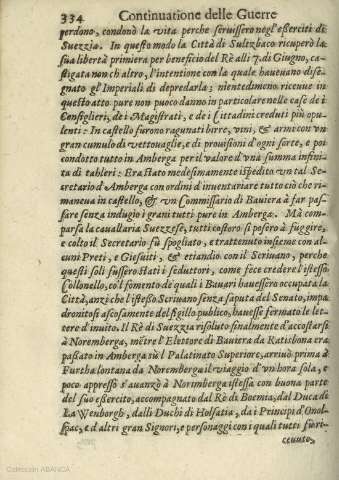 334 Continuatione delle Guerre
perdono, condonò la vita perche seruissero negl'esserciti di
Suezzia. In questo modo la Città di Sultzbaco ricuperò la
sua libertà primiera per beneficio del Rè alli 7. di Giugno, ca-
stigata non ch'altro, l'intentione con la quale haueuano dise-
gnato gl'Imperiali di depredarla; nientedimeno riceuue in
questo atto pure non puoco danno in particolare nelle case de i
Consiglieri, de i Magistrati, e de i Cittadini creduti più opu-
lenti: In castello furono ragunati birre, vini, & arme con vn
gran cumulo di vettouaglie, e di prouisioni d'ogni sorte, e poi
condotto tutto in Amberga per il valore d'vna summa infini-
ta di tahleri: Era stato medesimamente ispedito vn tal Se-
cretario d'Amberga con ordini d'inuentariare tutto ciò che ri-
maneua in castello, & vn Commissario di Bauiera à far pas-
sare senza indugio i grani tutti pure in Amberga. Mà com-
parsa la cauallaria Suezzese, tutti costoro si posero à fuggire,
e colto il Secretario fù spogliato, e trattenuto insieme con al-
cuni Preti, e Giesuiti, & etiandio con il Scriuano, perche
questi soli fussero stati i seduttori, come fece credere l'istesso
Collonello, co'l fomento de quali i Bauari hauessero occupata la
Città, anzi che l'istesso Scriuano senza saputa del Senato, impa-
dronitosi ascosamente del sigillo publico, hauesse fermato le let-
tere d'inuito. Il Rè di Suezzia risoluto finalmente d'accostarsi
à Noremberga, mẽtre l'Elettore di Bauiera da Ratisbona era
passato in Amberga sù'l Palatinato Superiore, arriuò prima à
Furtha lontana da Noremberga il viaggio d'vn hora sola, e
poco appresso s'auanzò à Norimberga istessa con buona parte
del suo essercito, accompagnato dal Rè di Boemia, dal Duca de
La Wenborgh, dalli Duchi di Holsatia, da i Principi d'Onol-
spac, e d'altri gran Signori, e personaggi con i quali tutti fù ri-
ceuuto,
Colección ABANCA